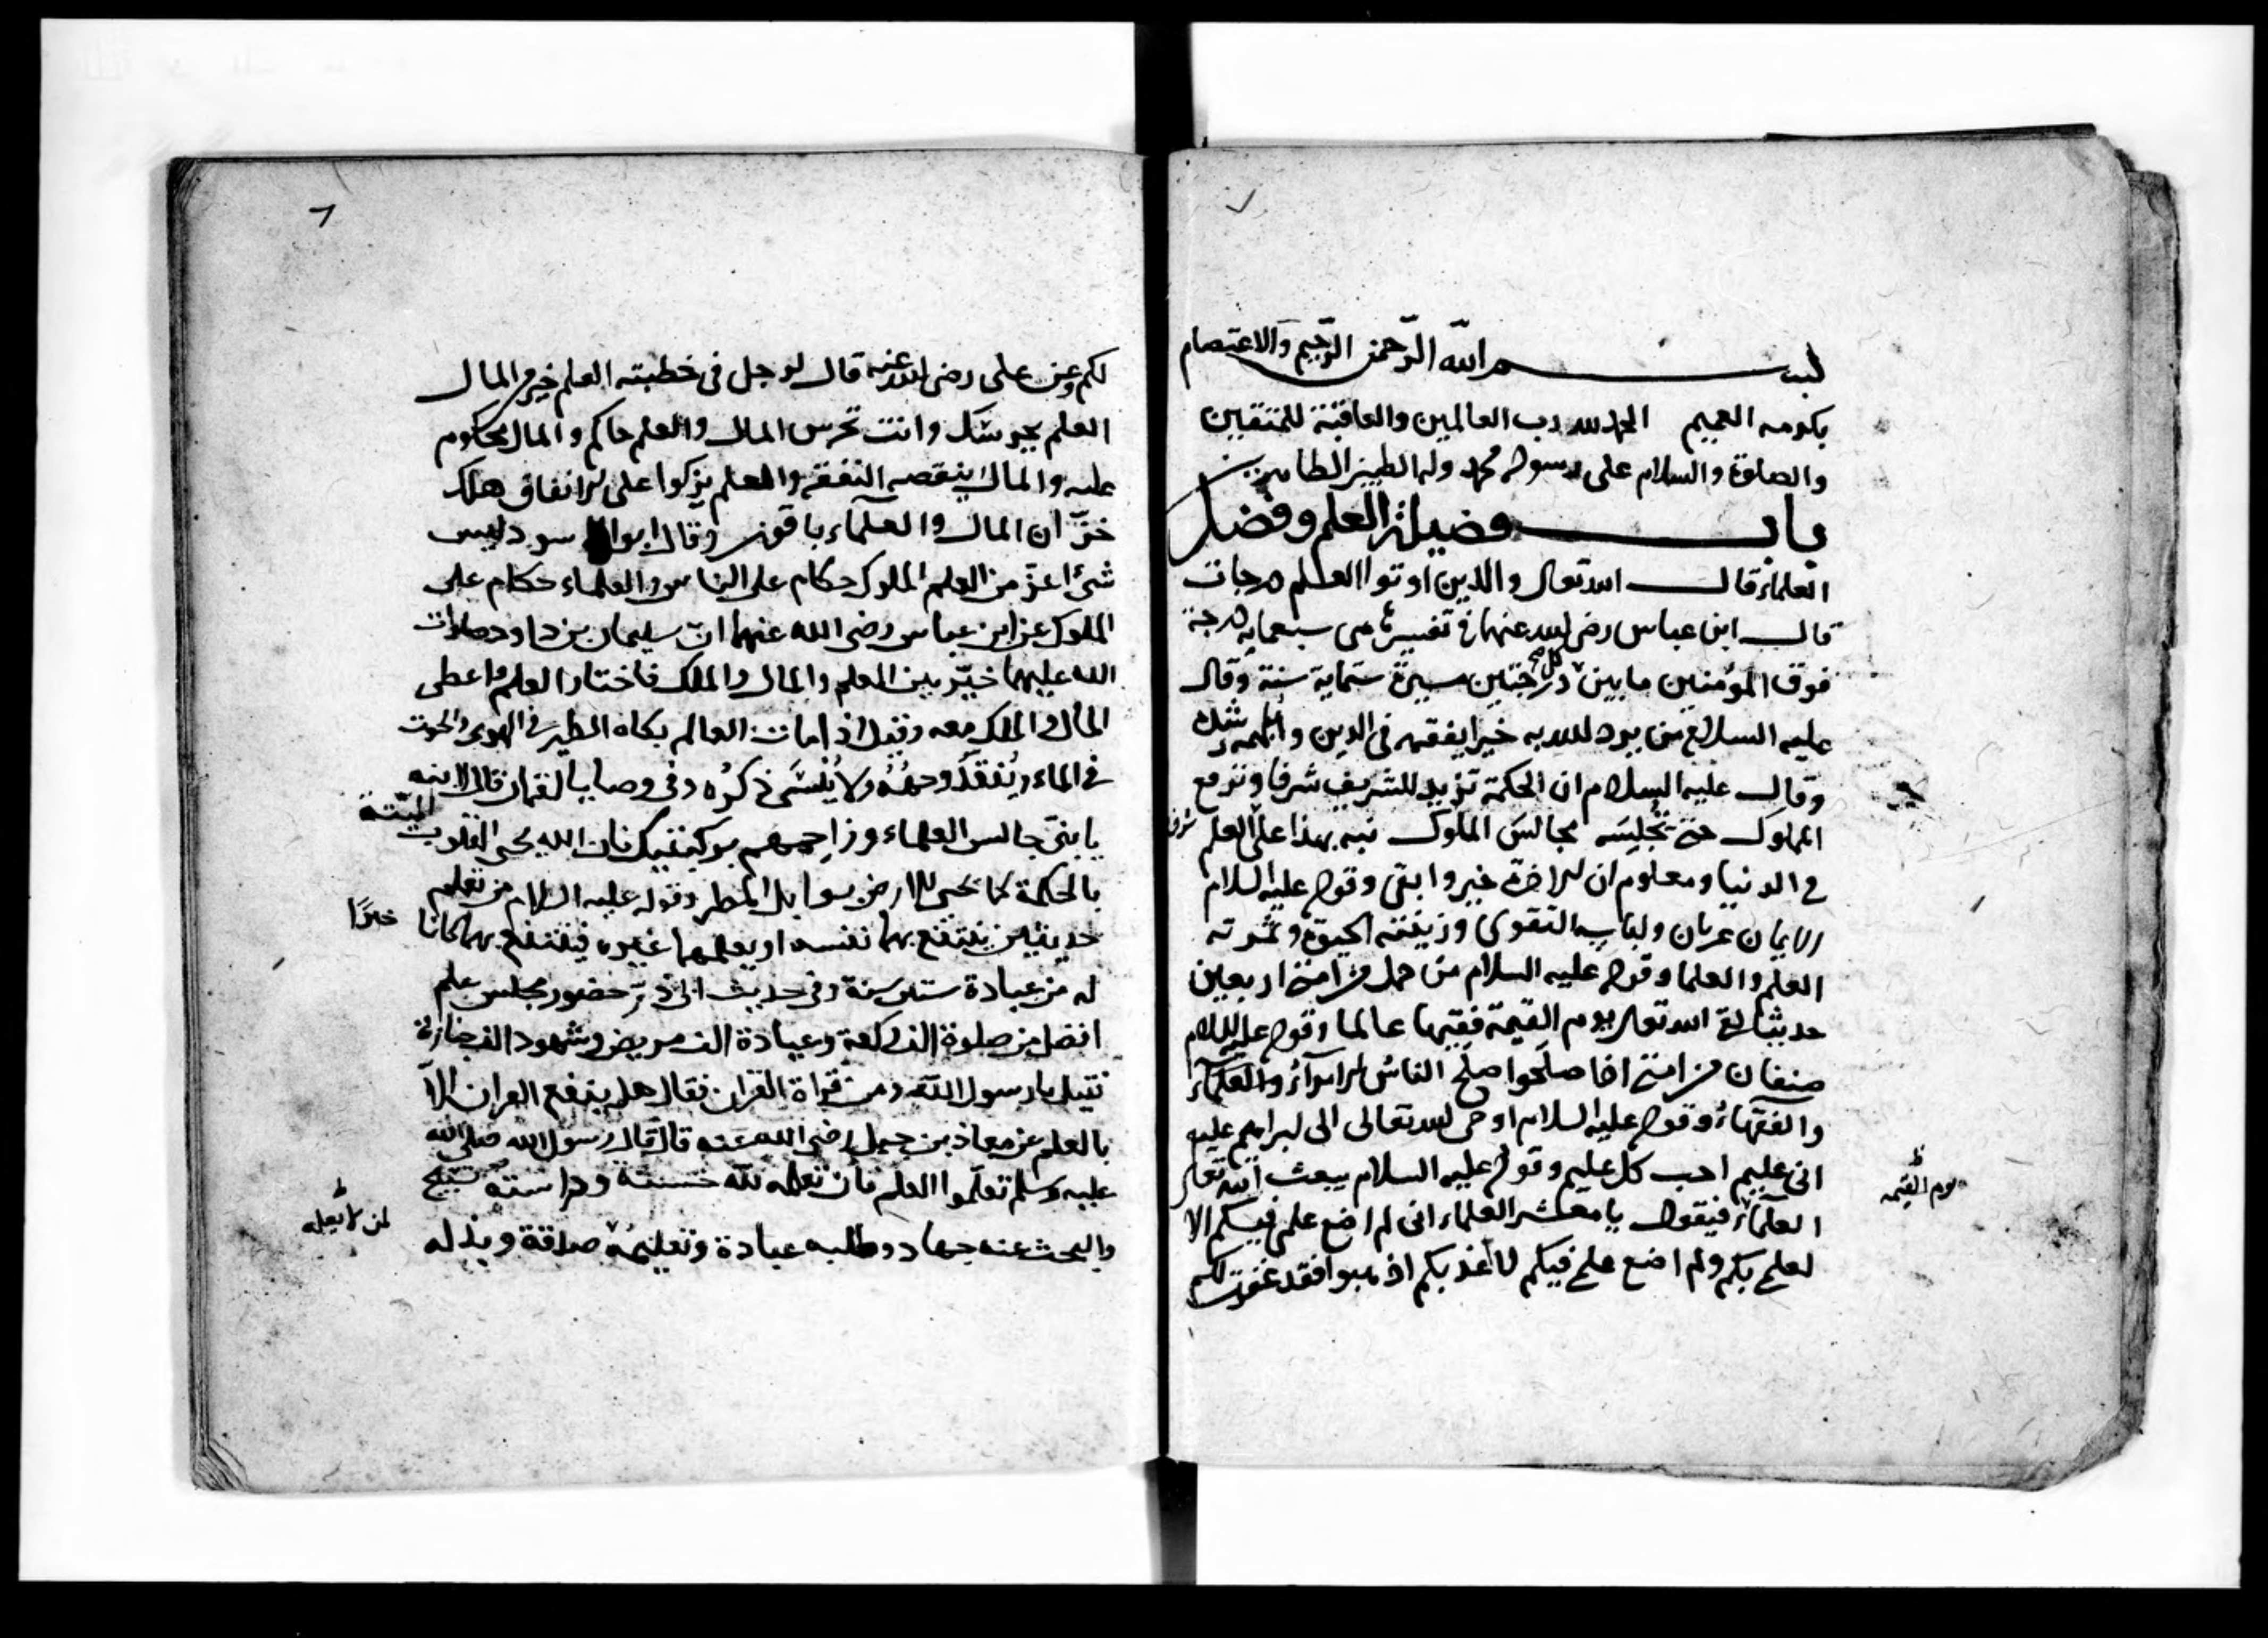 بســـم الله الرّحمن الرّحيم والاعتصام
بكرمه العميم الحمد لله رب العالمين والعاقبة للمتقين
والصلوة والسلام على رسوله محمد وله الطيبين الطاهرين
باب فضيلة العلم وفضل
العلماء قال الله تعالى والذين اوتوا العلم درجات
قال ابن عباس رضى الله عنهما فى تفسيره هى سبعماية درجة
فوق المؤمنين ما بين كل درجتين مسيرة ستماية سنة وقال
عليه السلام من يرد الله به خيرا يفقهه فى الدين ويلهمه رشده
وقال عليه السلام ان الحكمة تزيد للشريف شرفا وترفع
المملوك حتى تجلسه مجالس الملوك نبه بهذا على العلم شرفا
فى الدنيا ومعلوم ان الاخرة خير وابقى وقوله عليه السلام
الايمان عريان ولباسه التقوى وزينته الحيوة وثمرته
العلم والعلما وقوله عليه السلام من حمل من امتى اربعين
حديثا لقى الله تعالى يوم القيمة فقيها عالما وقوله عليه السلام
صنفان من امتى اذا صلحوا صلح الناس الامرآء والعلمآء
والفقهاء وقوله عليه السلام اوحى الله تعالى الى ابراهيم عليه
انى عليم احب كل عليم وقوله عليه السلام يبعث الله تعالى
يوم القيمه
العلمآء فيقول يا معشر العلماء انى لم اضع علمى فيكم الا
لعلمى بكم ولم اضع علمى فيكم لاعذبكم اذهبوا فقد غفرت لكم
٦
لكم وعن على رضى الله عنه قال لرجل فى خطبته العلم خير من المال
العلم يحرسك وانت تحرس المال والعلم حاكم والمال محكوم
عليه والمال ينقصه النفقة والعلم يزكوا على الانفاق هلك
خزّان المال والعلمآء باقون وقال ابوالاسود ليس
شئ اعزّ من العلم الملوك حكام على الناس والعلماء حكام على
الملوك عن ابن عباس رضى الله عنهما انّ سليمان بن داود صلوات
الله عليهما خيّر بين العلم والمال والملك فاختار العلم فاعطى
المال والملك معه وقيل اذا مات العالم بكاه الطير فى الهوى والحوت
فى الماء ويُفقَدُ وجهُهُ ولا يُنسَى ذكرُه وفى وصايا لقمان قال لابنه
يا بنىّ جالس العلماء وزاحمهم بركبتيك فان الله يحى القلوب الميّتة
بالحكمة كما يحى الارض بوابل المطر وقوله عليه السلام من تعلم
حديثين ينتفع بهما نفسه او يعلمهما غيره فينتفع بهما كانا خيرًا
له من عبادة ستين سنة وفى حديث ابى ذرّ حضور مجلس علم
افضل من صلوة الف ركعة وعيادة الف مريض وشهود الف جنازة
فقيل يا رسول الله ومن قراة القران فقال هل ينفع القران الاّ
بالعلم عن معاذ بن جبل رضى الله عنه قال قال رسول الله صلى الله
عليه وسلم تعلّموا العلم فان تعلمه لله حسنة ودراسته تسبيح
والبحث عنه جهاد وطلبه عبادة وتعليمه صدقة وبذله
لمن لا يعلمه